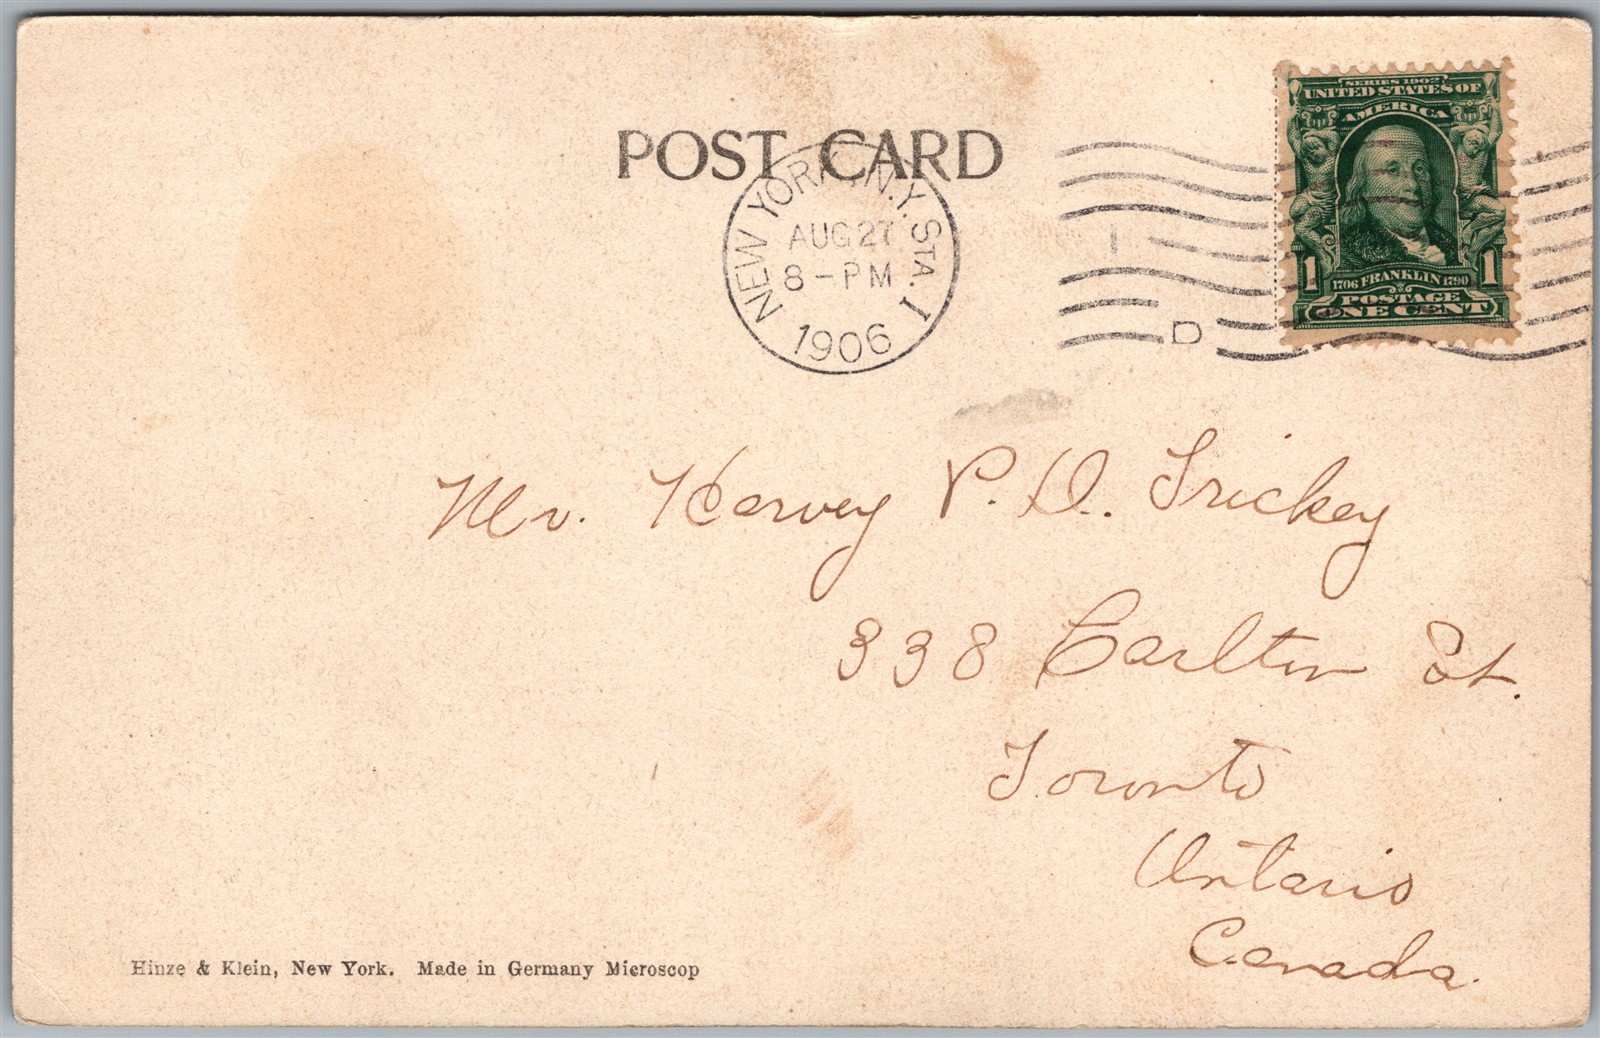 POST CARD
NEW YORK, N.Y. STA. I
AUG 27
8-PM
1906
D
SERIES 1902
UNITED STATES OF
AMERICA
1 1706 FRANKLIN 1790 1
POSTAGE
ONE CENT
Mr. Harvey P. D. Trickey
338 Carlton St.
Toronto
Ontario
Canada.
Hinze & Klein, New York. Made in Germany Microscop